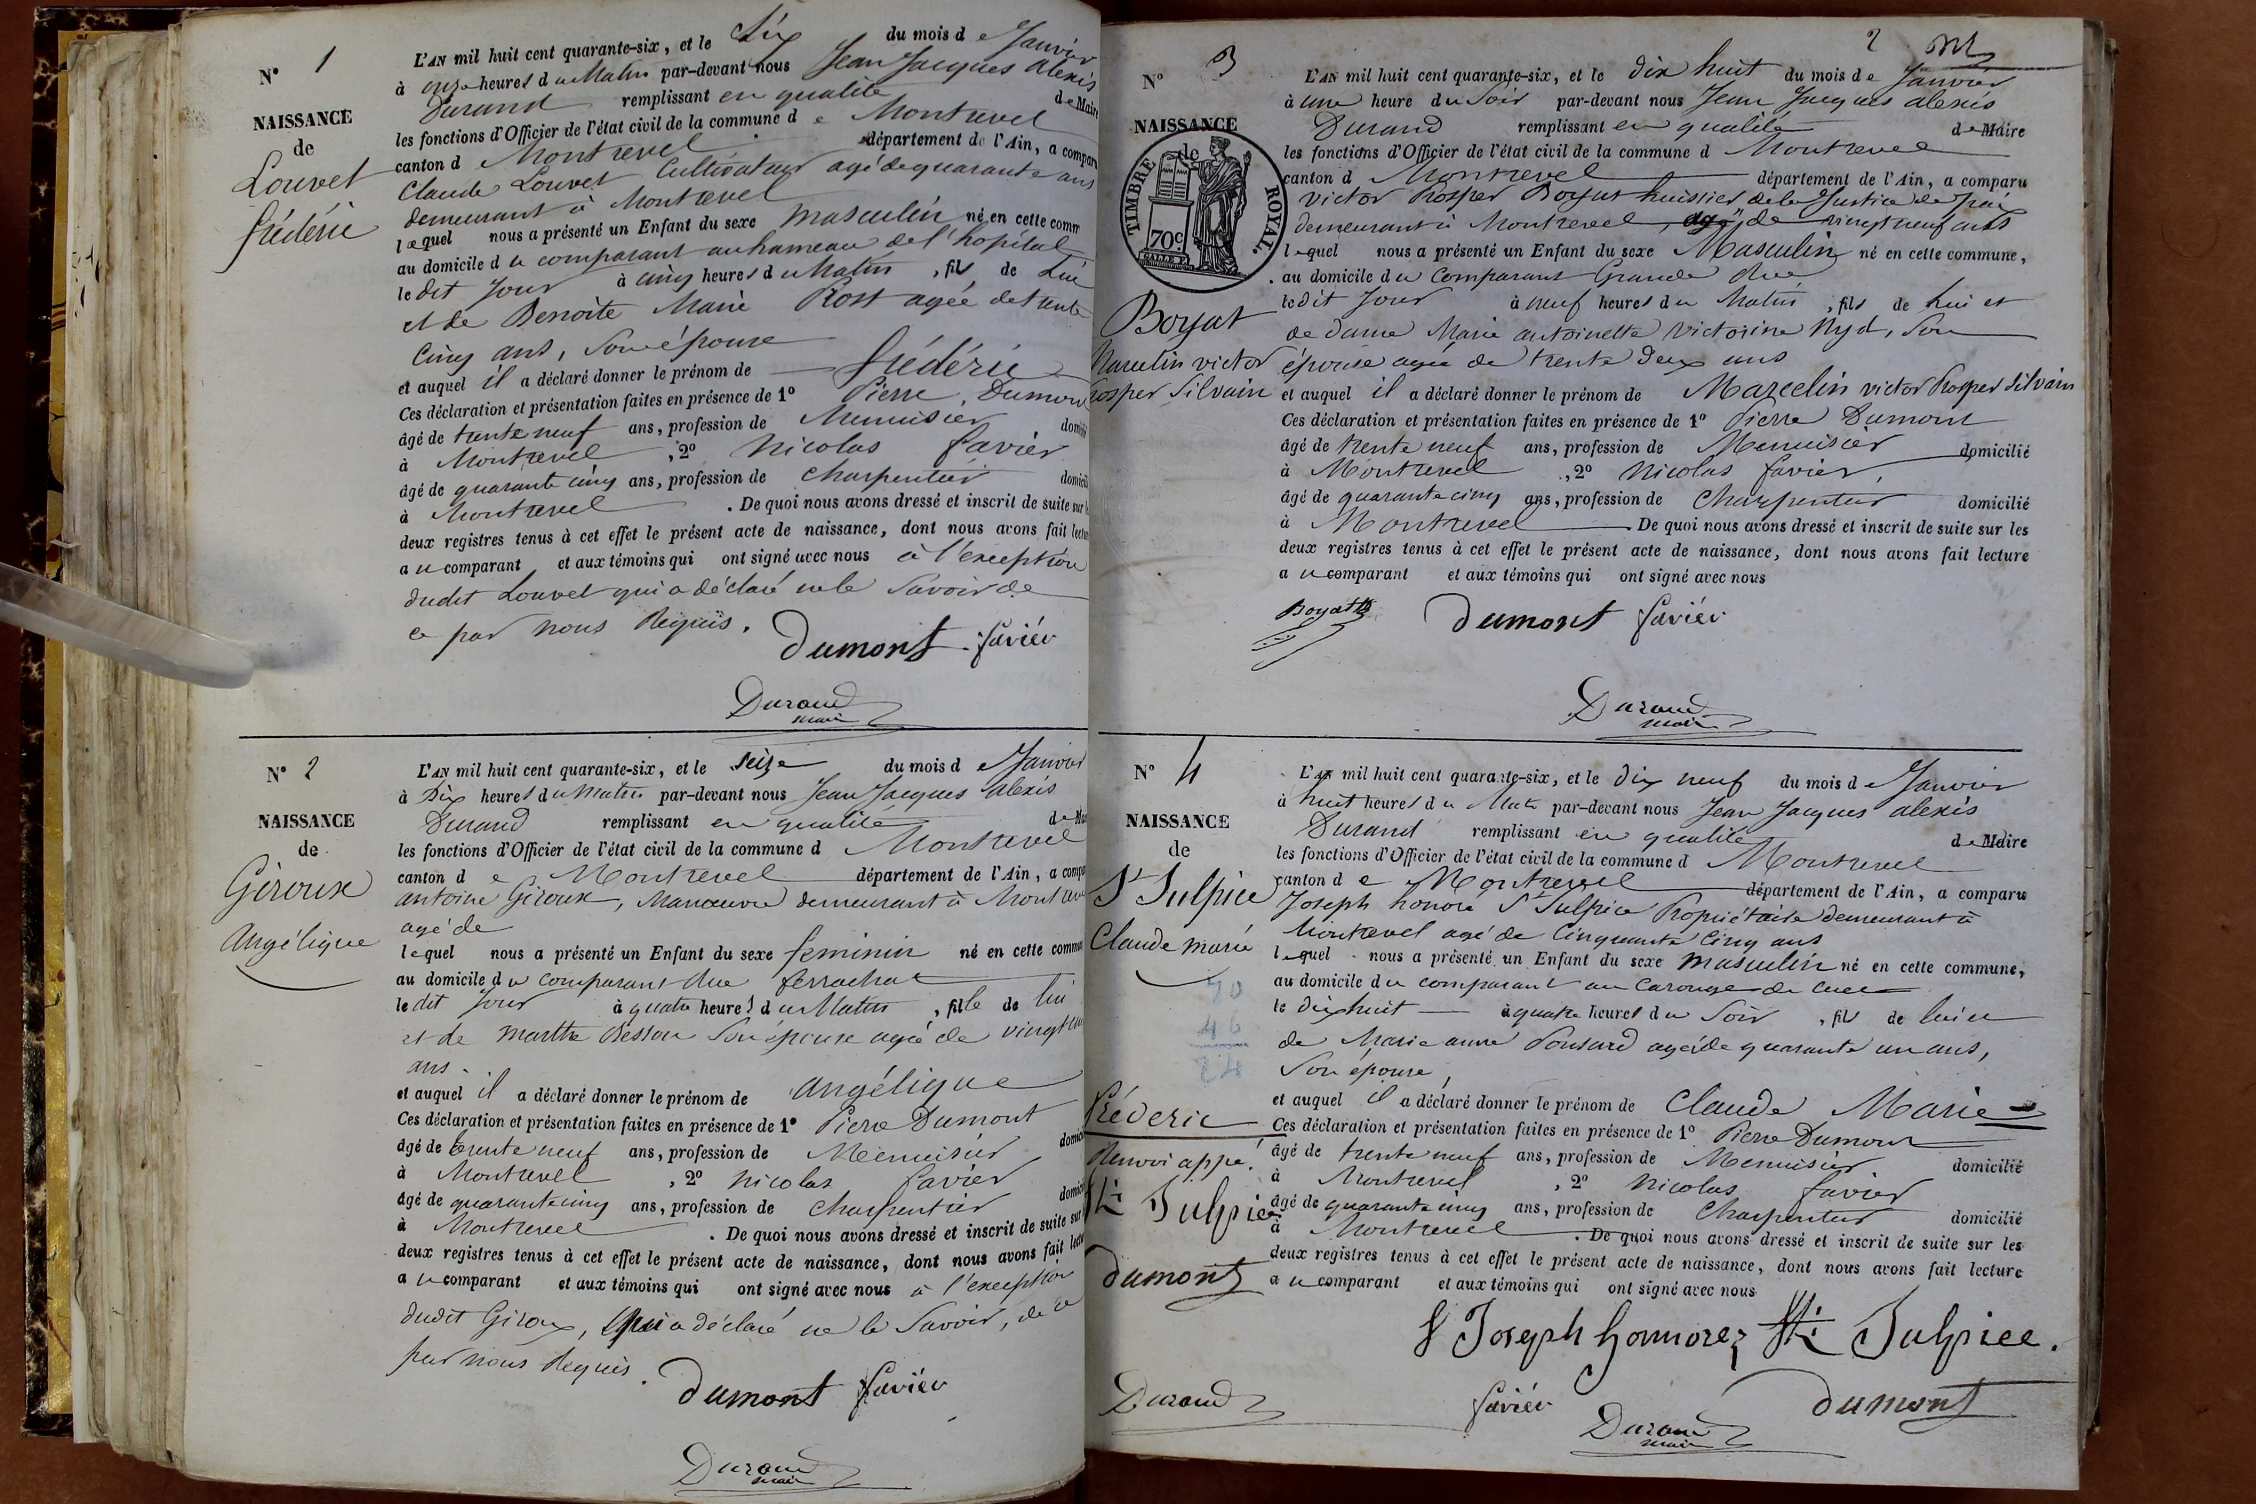 N° 1
NAISSANCE
de
Louvet
frédéric
L'AN mil huit cent quarante-six, et le Six du mois de Janvier
à onze heures du Matin par-devant nous Jean Jacques alexis
Durand remplissant en qualité de Maire
les fonctions d'Officier de l'état civil de la commune de Montrevel
canton de Montrevel département de l'Ain, a comparu
Claude Louvet Cultivateur agé de quarante ans
demeurant à Montrevel
lequel nous a présenté un Enfant du sexe masculin né en cette comm
au domicile du comparant au hameau de l'hopital
le dit jour à cinq heures du Matin, fils de Lui
et de Benoite Marie Rost agée de trente
cinq ans, Son épouse
et auquel il a déclaré donner le prénom de frédéric
Ces déclaration et présentation faites en présence de 1° Pierre Dumont
âgé de trente neuf ans, profession de Menuisier domicilié
à Montrevel, 2° Nicolas favier
âgé de quarante cinq ans, profession de Charpentier domicilié
à Montrevel. De quoi nous avons dressé et inscrit de suite sur les
deux registres tenus à cet effet le présent acte de naissance, dont nous avons fait lecture
au comparant et aux témoins qui ont signé avec nous à l'exception
dudit Louvet qui a déclaré ne le Savoir de
ce par nous Requis.
Dumont favier
Durand
maire
N° 2
NAISSANCE
de
Giroux
Angélique
L'AN mil huit cent quarante-six, et le Seize du mois de Janvier
à Dix heures du Matin par-devant nous Jean Jacques alexis
Durand remplissant en qualité de Maire
les fonctions d'Officier de l'état civil de la commune d Montrevel
canton de Montrevel département de l'Ain, a comparu
antoine Giroux, Manoeuvre demeurant à Montrevel
agé de
lequel nous a présenté un Enfant du sexe feminin né en cette commune
au domicile du comparant Rue ferrachat
le dit jour à quatre heures du Matin, fille de lui
et de Marthe Besson Son épouse agée de vingt
ans.
et auquel il a déclaré donner le prénom de Angélique
Ces déclaration et présentation faites en présence de 1° Pierre Dumont
âgé de trente neuf ans, profession de Menuisier domicilié
à Montrevel, 2° Nicolas favier
âgé de quarante cinq ans, profession de Charpentier domicilié
à Montrevel. De quoi nous avons dressé et inscrit de suite sur
deux registres tenus à cet effet le présent acte de naissance, dont nous avons fait lecture
au comparant et aux témoins qui ont signé avec nous à l'exception
dudit Giroux, qui a déclaré ne le Savoir, de ce
par nous Requis.
Dumont favier
Durand
maire
2
N° 3
NAISSANCE
de
TIMBRE ROYAL
70c.
Boyat
Marcelin victor
Prosper Silvain
L'AN mil huit cent quarante-six, et le dix huit du mois de Janvier
à une heure du Soir par-devant nous Jean Jacques alexis
Durand remplissant en qualité de Maire
les fonctions d'Officier de l'état civil de la commune d Montrevel
canton d Montrevel département de l'Ain, a comparu
victor Prosper Boyat huissier de la Justice de paix
demeurant à Montrevel, agé de vingt neuf ans
lequel nous a présenté un Enfant du sexe Masculin né en cette commune,
au domicile du Comparant Grande Rue
le dit Jour à neuf heures du Matin, fils de lui et
de dame Marie antoinette Victorine Nyd, Son
épouse agée de trente deux ans
et auquel il a déclaré donner le prénom de Marcelin victor Prosper Silvain
Ces déclaration et présentation faites en présence de 1° Pierre Dumont
âgé de trente neuf ans, profession de Menuisier domicilié
à Montrevel, 2° Nicolas favier,
âgé de quarante cinq ans, profession de Charpentier domicilié
à Montrevel. De quoi nous avons dressé et inscrit de suite sur les
deux registres tenus à cet effet le présent acte de naissance, dont nous avons fait lecture
au comparant et aux témoins qui ont signé avec nous
Boyat Dumont favier
Durand
maire
N° 4
NAISSANCE
de
St Sulpice
Claude marie
frédéric
Renvoi appé.
St Sulpice
Dumont
Durand
L'AN mil huit cent quarante-six, et le dix neuf du mois de Janvier
à huit heures du Matin par-devant nous Jean Jacques alexis
Durand remplissant en qualité de Maire
les fonctions d'Officier de l'état civil de la commune d Montrevel
canton de Montrevel département de l'Ain, a comparu
Joseph honoré St Sulpice Propriétaire demeurant à
Montrevel agé de Cinquante cinq ans
lequel nous a présenté un Enfant du sexe masculin né en cette commune,
au domicile du comparant au Carouge de
le dix huit à quatre heures du Soir, fils de lui et
de Marie anne Ponsard agée de quarante un ans,
Son épouse,
et auquel il a déclaré donner le prénom de Claude Marie
Ces déclaration et présentation faites en présence de 1° Pierre Dumont
âgé de trente neuf ans, profession de Menuisier domicilié
à Montrevel, 2° Nicolas favier
âgé de quarante cinq ans, profession de Charpentier domicilié
à Montrevel. De quoi nous avons dressé et inscrit de suite sur les
deux registres tenus à cet effet le présent acte de naissance, dont nous avons fait lecture
au comparant et aux témoins qui ont signé avec nous
Joseph honnorez St Sulpice.
favier Dumont
Durand
maire